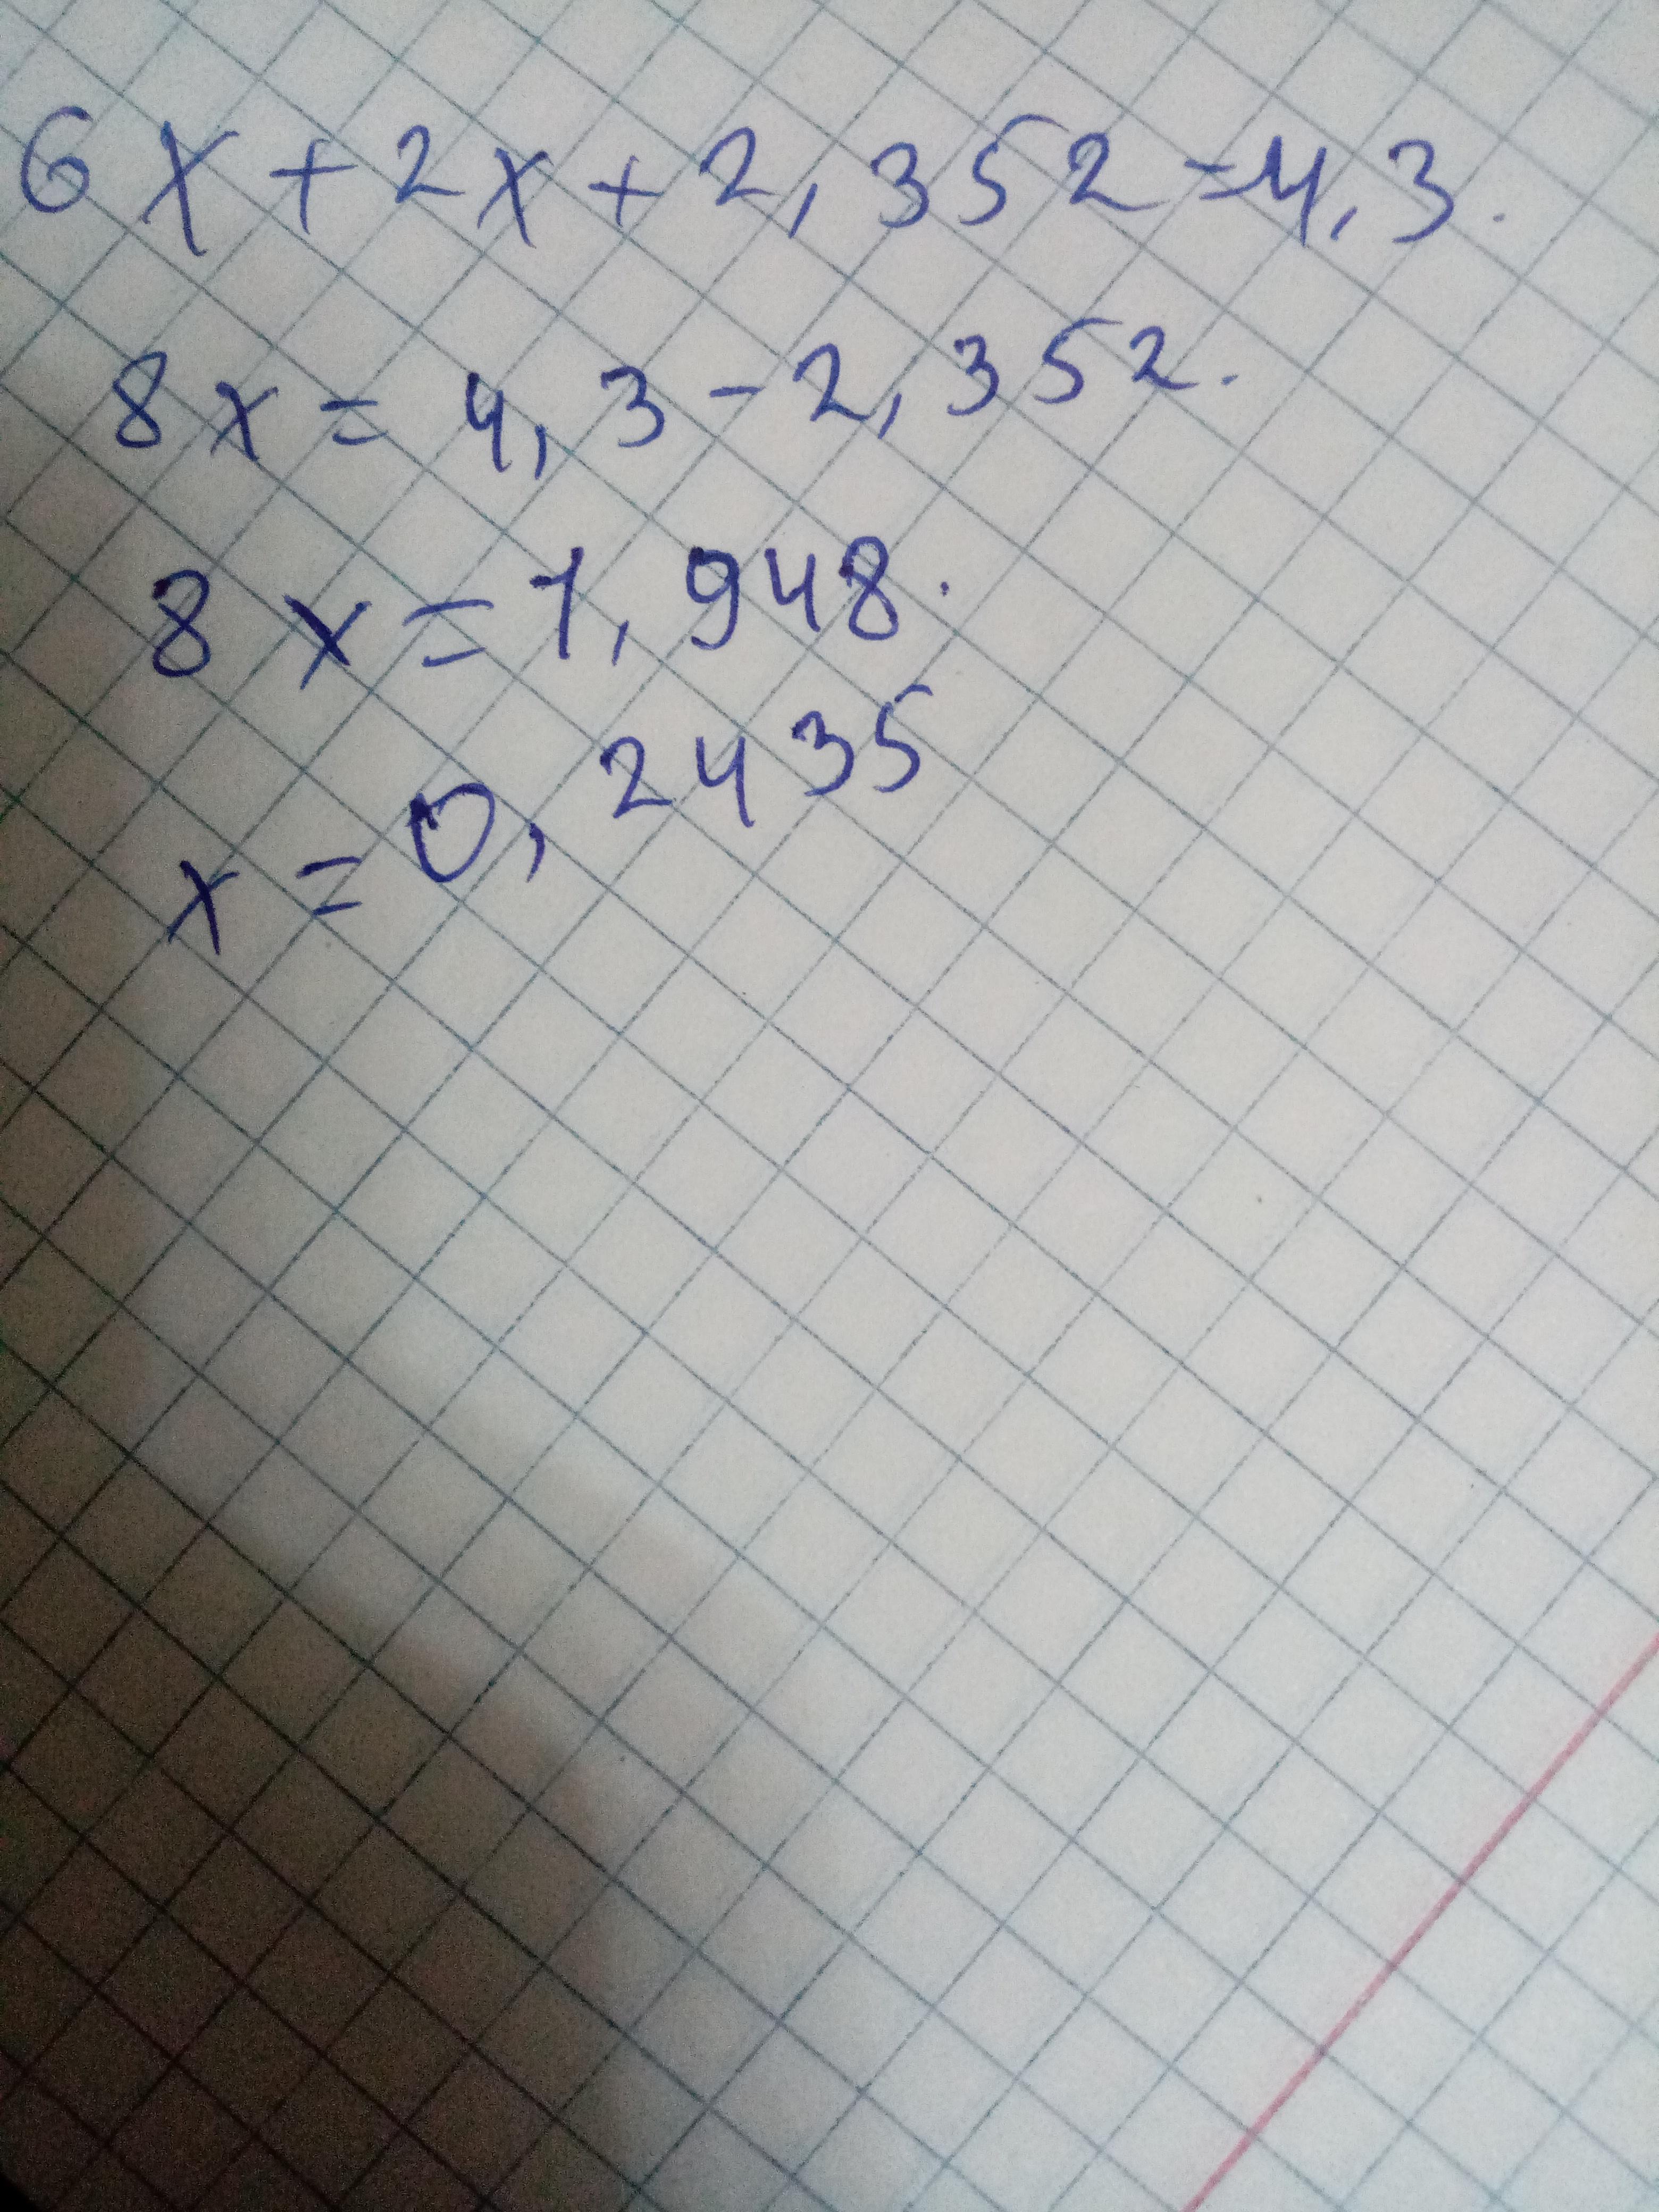 6x+2x+2,352=4,3.
8x=4,3-2,352.
8x=1,948.
x=0,2435